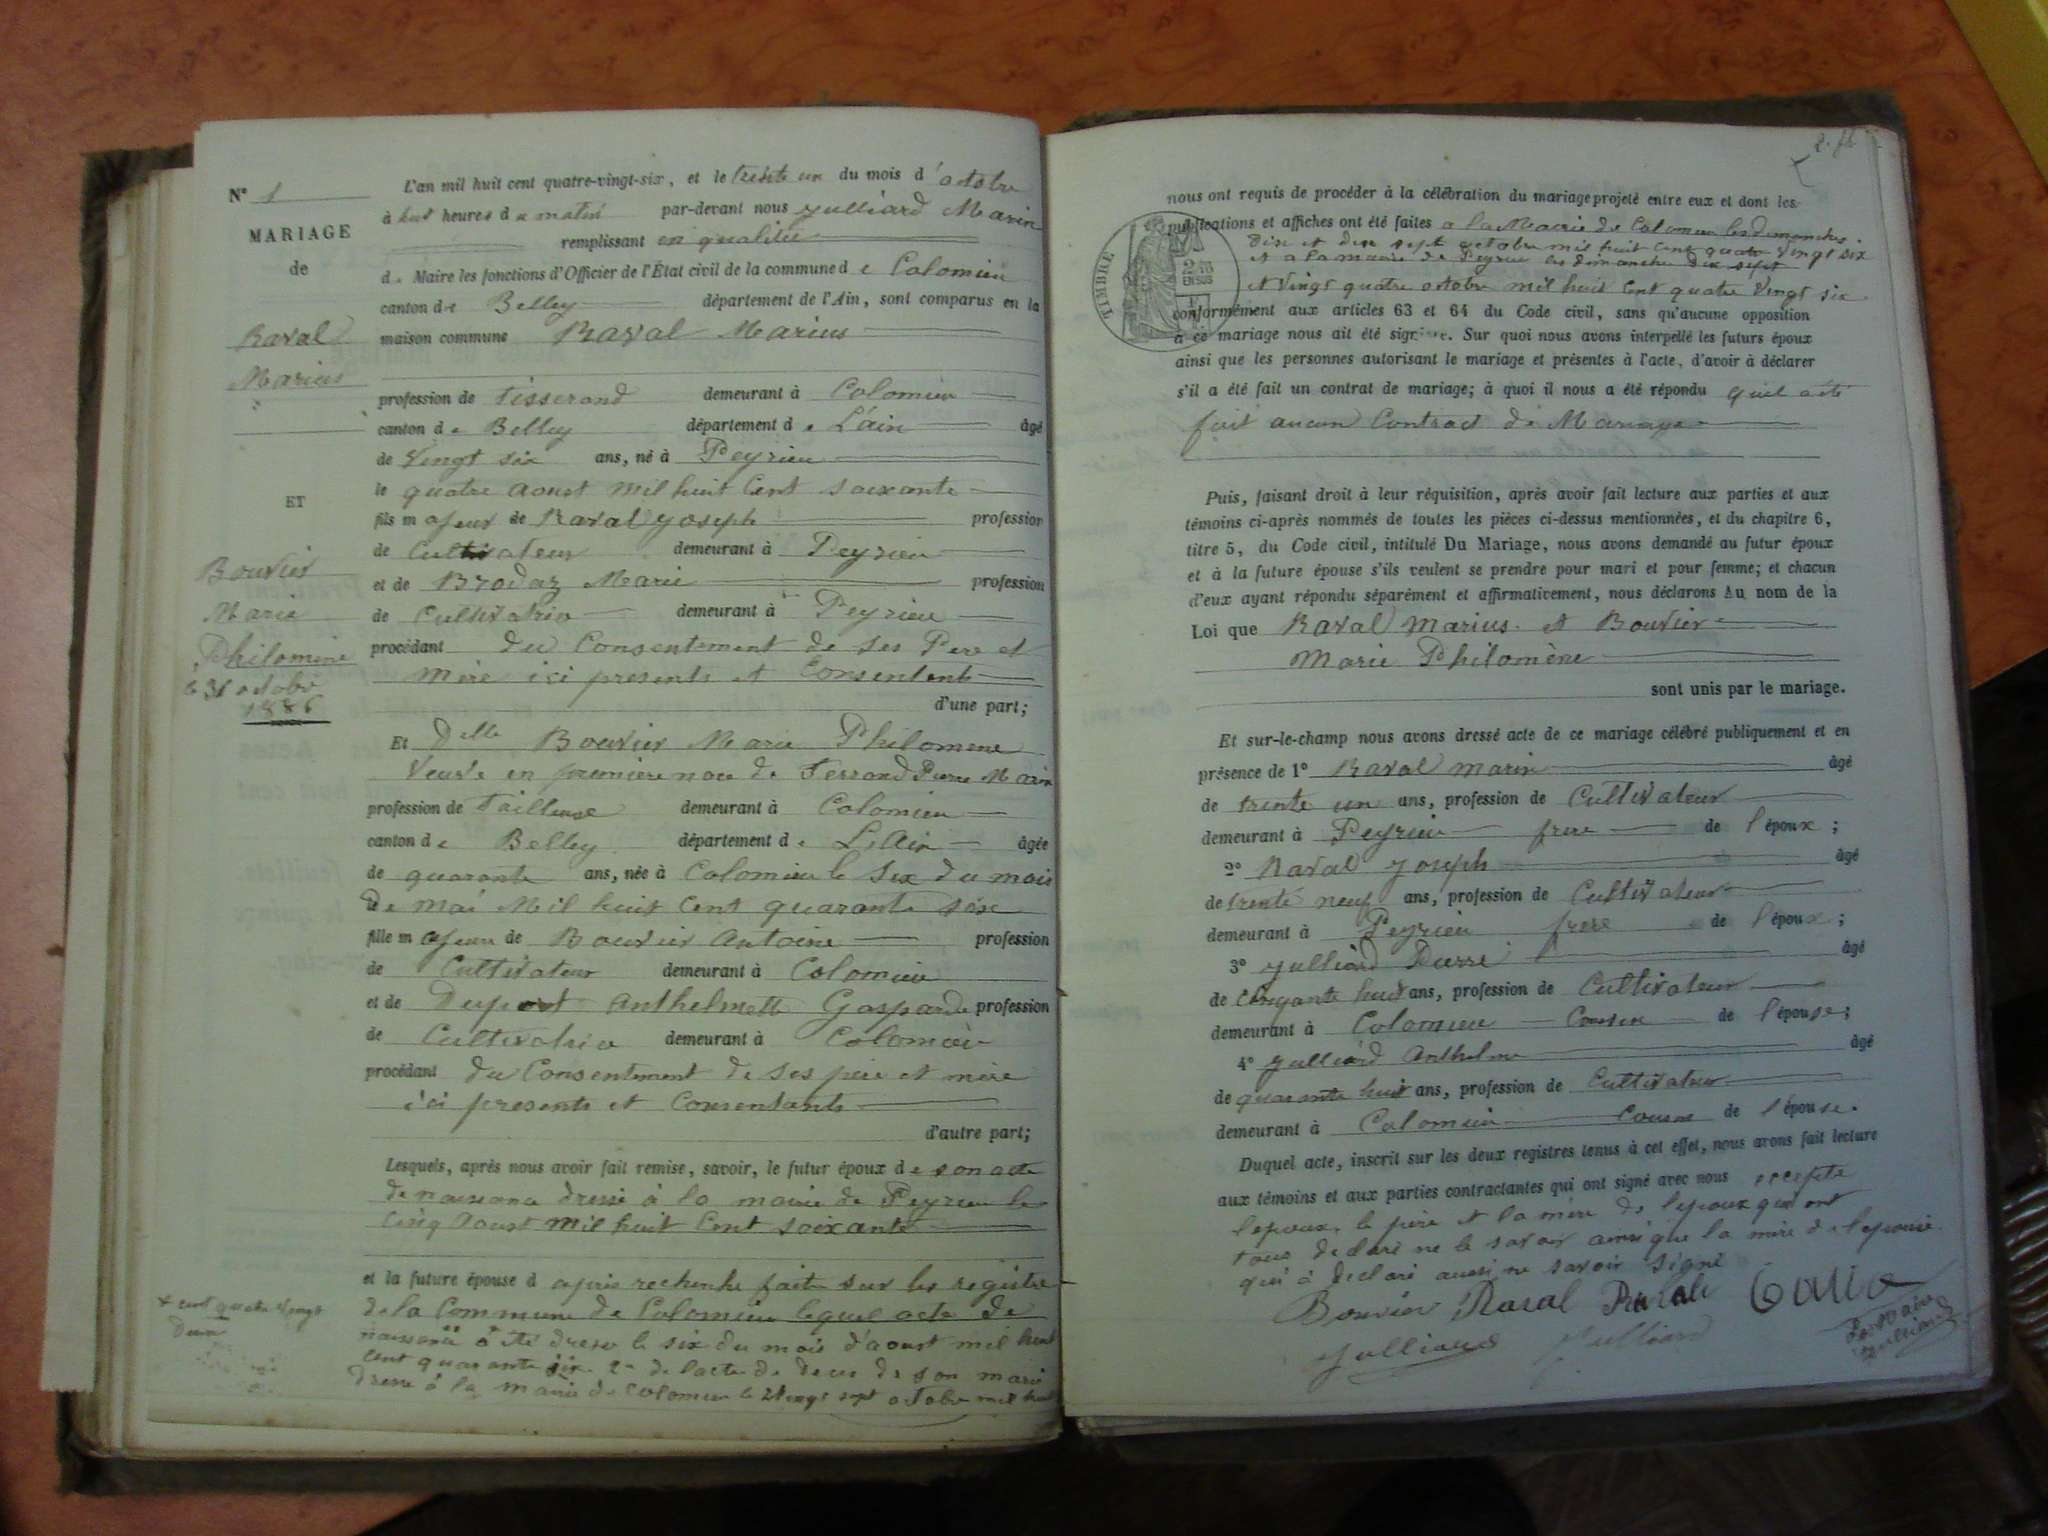 N° 1
MARIAGE
de
Raval
Marius
ET
Bouvier
Marie
Philomène
le 31 octobre
1886
L'an mil huit cent quatre-vingt-six, et le trente un du mois d'octobre
à huit heures du matin par-devant nous Julliard Marin
remplissant en qualitée
de Maire les fonctions d'Officier de l'État civil de la commune de Colomieu
canton de Belley département de l'Ain, sont comparus en la
maison commune Raval Marius
profession de Tisserand demeurant à Colomieu
canton de Belley département de L'ain âgé
de Vingt six ans, né à Peyrieu
le quatre Aoust mil huit Cent soixante
fils majeur de Raval Joseph profession
de Cultivateur demeurant à Peyrieu
et de Brodaz Marie profession
de Cultivatrice demeurant à Peyrieu
procédant du Consentement de ses Pere et
Mère ici presents et Consentent
d'une part;
Et Delle Bouvier Marie Philomene
Veuve en première noce de Ferrand Pierre Marin
profession de Tailleuse demeurant à Colomieu
canton de Belley département de L'Ain âgée
de quarante ans, née à Colomieu le Six du mois
de mai Mil huit Cent quarante Six
fille majeure de Bouvier Antoine profession
de Cultivateur demeurant à Colomieu
et de Duport Anthelmette Gasparde profession
de Cultivatrice demeurant à Colomieu
procédant du Consentement de Ses père et mère
ici presents et Consentants
d'autre part;
Lesquels, après nous avoir fait remise, savoir, le futur époux de son acte
de naissance dressé à la mairie de Peyrieu le
cinq Aoust mil huit Cent soixante
et la future épouse d apres recherche faite sur les registre
de la Commune de Colomieu lequel acte de
naissance a été dressé le six du mois d'aoust mil huit
cent quarante six. 2° de lacte de deces de son mari
dressé à la mairie de Colomieu le Vingt sept octobre mil huit
+ cent quatre Vingt
deux
nous ont requis de procéder à la célébration du mariage projeté entre eux et dont les
publications et affiches ont été faites a la Mairie de Colomieu les dimanches
Dix et dix sept octobre mil huit Cent quatre Vingt six
et a la mairie de Peyrieu les dimanche dix sept
et Vingt quatre octobre mil huit Cent quatre Vingt six
TIMBRE
EN SUS
conformément aux articles 63 et 64 du Code civil, sans qu'aucune opposition
à ce mariage nous ait été signifiée. Sur quoi nous avons interpellé les futurs époux
ainsi que les personnes autorisant le mariage et présentes à l'acte, d'avoir à déclarer
s'il a été fait un contrat de mariage; à quoi il nous a été répondu quil a été
fait aucun Contract de Mariage
Puis, faisant droit à leur réquisition, après avoir fait lecture aux parties et aux
témoins ci-après nommés de toutes les pièces ci-dessus mentionnées, et du chapitre 6,
titre 5, du Code civil, intitulé Du Mariage, nous avons demandé au futur époux
et à la future épouse s'ils veulent se prendre pour mari et pour femme; et chacun
d'eux ayant répondu séparément et affirmativement, nous déclarons Au nom de la
Loi que Raval Marius et Bouvier
Marie Philomène
sont unis par le mariage.
Et sur-le-champ nous avons dressé acte de ce mariage célébré publiquement et en
présence de 1° Raval Marin âgé
de trente un ans, profession de Cultivateur
demeurant à Peyrieu frere de l'époux;
2° Raval Joseph âgé
de trente neuf ans, profession de Cultivateur
demeurant à Peyrieu frere de l'époux;
3° Julliard Pierre âgé
de cinquante huit ans, profession de Cultivateur
demeurant à Colomieu Cousin de l'épouse;
4° Julliard Anthelme âgé
de quarante huit ans, profession de Cultivateur
demeurant à Colomieu Cousin de l'épouse.
Duquel acte, inscrit sur les deux registres tenus à cet effet, nous avons fait lecture
aux témoins et aux parties contractantes qui ont signé avec nous excepté
lepoux, le père et la mère de lepoux qui ont
tous declaré ne le savoir ainsi que la mère de lepouse
qui a declaré aussi ne savoir Signé
Bouvier Raval Raval
Julliard Julliard
Le Maire
Julliard